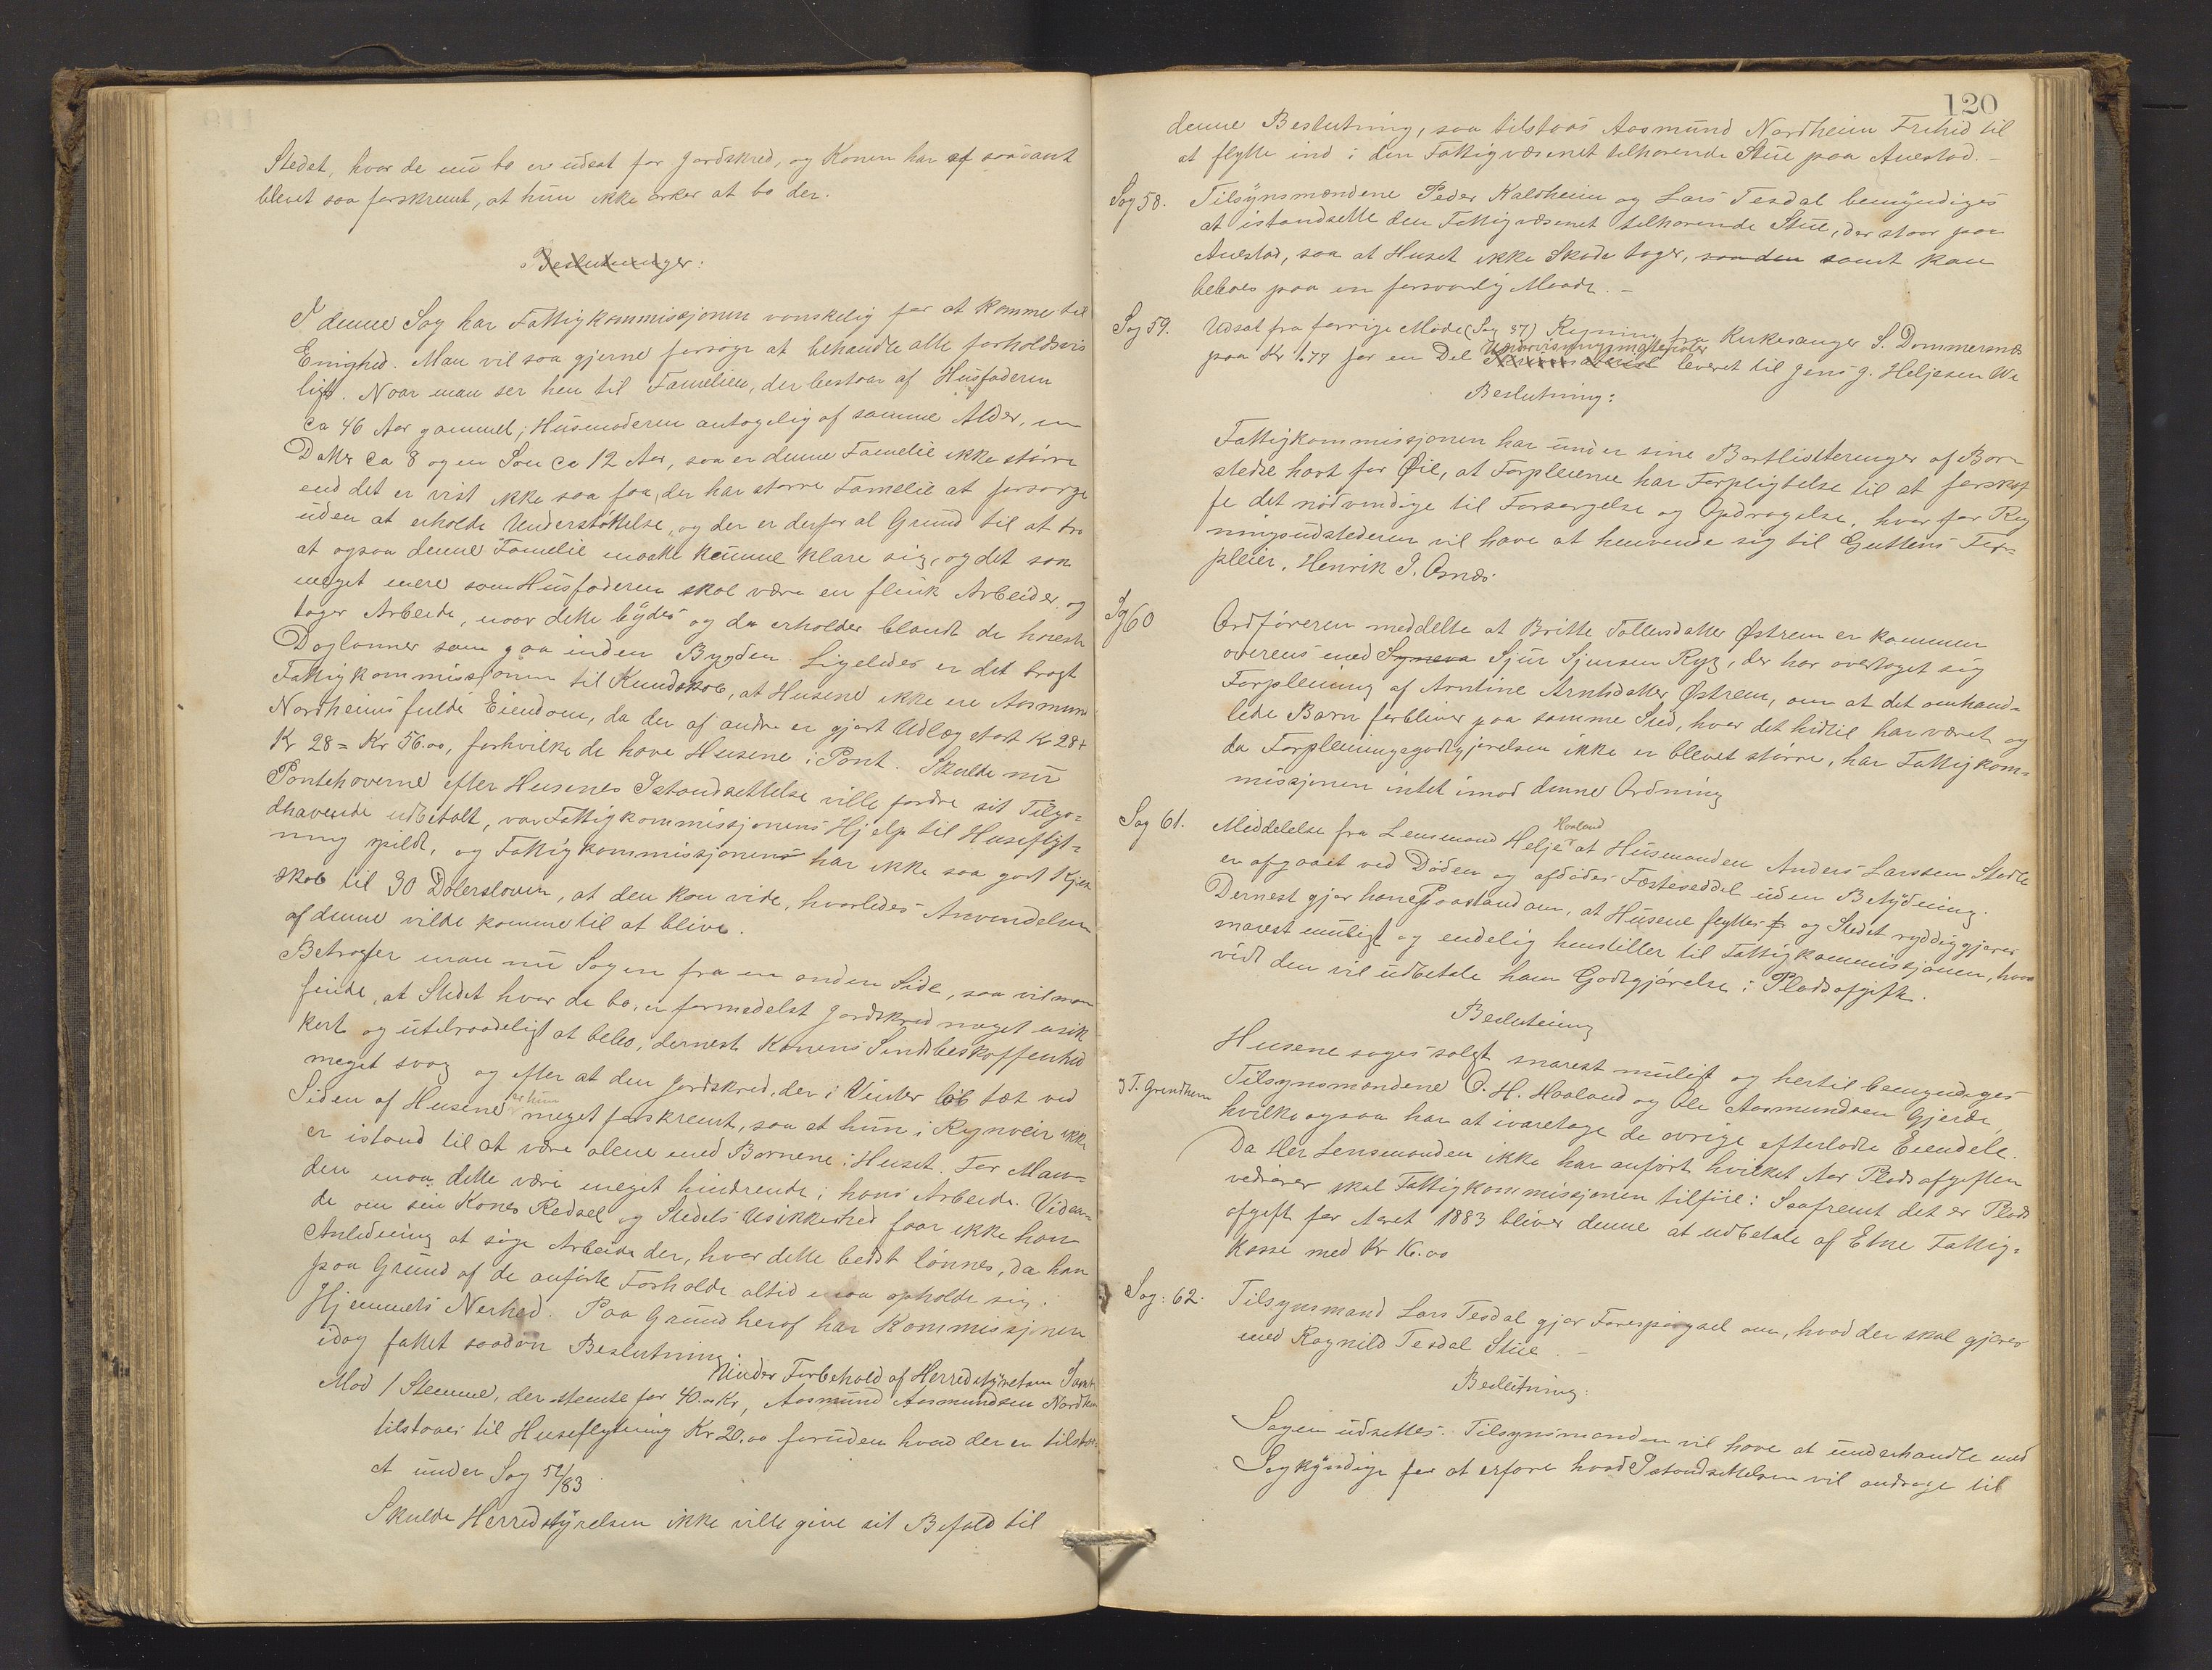 Stedet, hvor de nu bo er udsat for Jordskred, og Konen har af saadant
blevet saa forskremt, at hun ikke orker at bo der.
Beslutninger:
I denne Sag har Fattigkommissjonen vanskelig for at komme til
Enighed. Man vil saa gjerne forsøge at behandle alle forholdsvis
ligt. Naar man ser hen til Familien, der bestaar af Husfaderen
ca 46 Aar gammel, Husmoderen antagelig af samme Alder, en
Datter ca 8 og en Søn ca 12 Aar, saa er denne Familie ikke større
end det er vist ikke saa faa, der har større Familie at forsørge
uden at erholde Understøttelse, og der er derfor al Grund til at tro
at ogsaa denne Familie maatte kunne klare sig, og det saa
meget mere som Husfaderen skal være en flink Arbeider og
tager Arbeide, naar dette bydes og da erholder blandt de høieste
Daglønner som gaa inden Bygden. Ligeledes er det bragt
Fattigkommissionen til Kundskab, at Husene ikke ere Aasmund
Nordheims fulde Eiendom, da der af andre er gjort Udlæg stort Kr 28 +
Kr 28 = Kr 56.00, forhvilke de have Husene i Pant. Skulde nu
Pantehaverne efter Husenes Istandsættelse ville fordre sit Tilgo-
dehavende udbetalt, var Fattigkommissjonens Hjelp til Huseflyt-
ning spildt, og Fattigkommissjonens har ikke saa godt Kjen
skab til 30 Dalersloven, at den kan vide, hvorledes Anvendelsen
af denne vilde komme til at blive.
Betragter man nu Sagen fra en anden Side, saa vil man
finde, at Stedet hvor de bo, er formedelst Jordskred meget usik
kert og utilraadeligt at bebo, dernest Konens Sindsbeskaffenhed
meget svag og efter at den Jordskred, der i Vinter løb tæt ved
Siden af Husene er hun meget forskremt, saa at hun i Regnveir ikke
er istand til at være alene med Børnene i Huset. For Man-
den maa dette være meget hindrende i hans Arbeide. Viden-
de om sin Kones Redsel og Stedets Usikkerhed faar ikke han
Anledning at søge Arbeide der, hvor dette bedst lønnes, da han
paa Grund af de anførte Forholde altid maa opholde sig i
Hjemmets Nerhed. Paa Grund heraf har Kommissjonen
idag fattet saadan Beslutning:
Under Forbehold af Herredstyrets Samt.
Mod 1 Stemme, der stemte for 40.00 Kr, Aasmund Aasmundsen Nordheim
tilstaaes til Huseflytning Kr 20.00 foruden hvad der er tilstaa-
et under Sag 52/83.
Skulde Herredstyrelsen ikke ville give sit Bifald til
120
denne Beslutning, saa tilstaaes Aasmund Nordheim Frihed til
at flytte ind i den Fattigvæsenet tilhørende Stue paa Auestad.
Sag 58. Tilsynsmændene Peder Kaldheim og Lars Tesdal bemyndiges
at istandsætte den Fattigvæsenet tilhørende Stue, der staar paa
Auestad, saa at Huset ikke Skade tager, saa den samt kan
beboes paa en forsvarlig Maade.
Sag 59. Udsat fra forrige Møde (Sag 37) Regning fra Kirkesanger S. Dommersnes
Undervisningsmaterialer
paa Kr 1.77 for en Del leveret til Jens J. Heljesen Vi
Beslutning:
Fattigkommissjonen har under sine Bortlisiteringer af Bor-
stedte havt for Øie, at Forpleierne har Forpligtelse til at forskaf
fe det nødvendige til Forsørgelse og Opdragelse, hvorfor Reg
ningsudstederen vil have at henvende sig til Guttens For-
pleier, Henrik J. Osnes.
Sag 60 Ordføreren meddelte at Britte Tollevsdatter Østrem er kommen
overens med Synneva Sjur Sjursen Ryg, der har overtaget sig
Forpleining af Arntine Arntsdatter Østrem, om at det omhand-
lede Barn forbliver paa samme Sted, hvor det hidtil har været og
da Forpleiningsgodtgjørelsen ikke er blevet større, har Fattigkom-
missjonen intet imod denne Ordning
Sag 61. Meddelelse fra Lensmand Helje Haaland at Husmanden Anders Larssen Stedle
er afgaaet ved Døden og afdødes Festeseddel uden Betydning.
Dernest gjør han Paastand om, at Husene flyttes fr og Stedet ryddiggjøres
snarest muligt og endelig henstiller til Fattigkommissjonen, hvor
vidt den vil udbetale ham Godtgjørelse i Pladsafgift.
Beslutning
Husene søges solgt snarest muligt og hertil bemyndiges
J T. Grindheim Tilsynsmændene O. H. Haaland og Ole Aasmundsen Gjerde,
hvilke ogsaa har at ivaretage de øvrige efterladte Eiendele.
Da Her Lensmanden ikke har anført hvilket Aar Pladsafgiften
vedrører skal Fattigkommissjonen tilføie: Saafremt det er Plads
afgift for Aaret 1883 bliver denne at udbetale af Etne Fattig-
kasse med Kr 16.00
Sag: 62. Tilsynsmand Lars Tesdal gjør Forespørgsel om, hvad der skal gjøres
med Ragnild Tesdal Stue.
Beslutning:
Sagen udsættes. Tilsynsmanden vil have at underhandle med
Sagkyndige for at erfare hvad Istandsættelsen vil andrage til